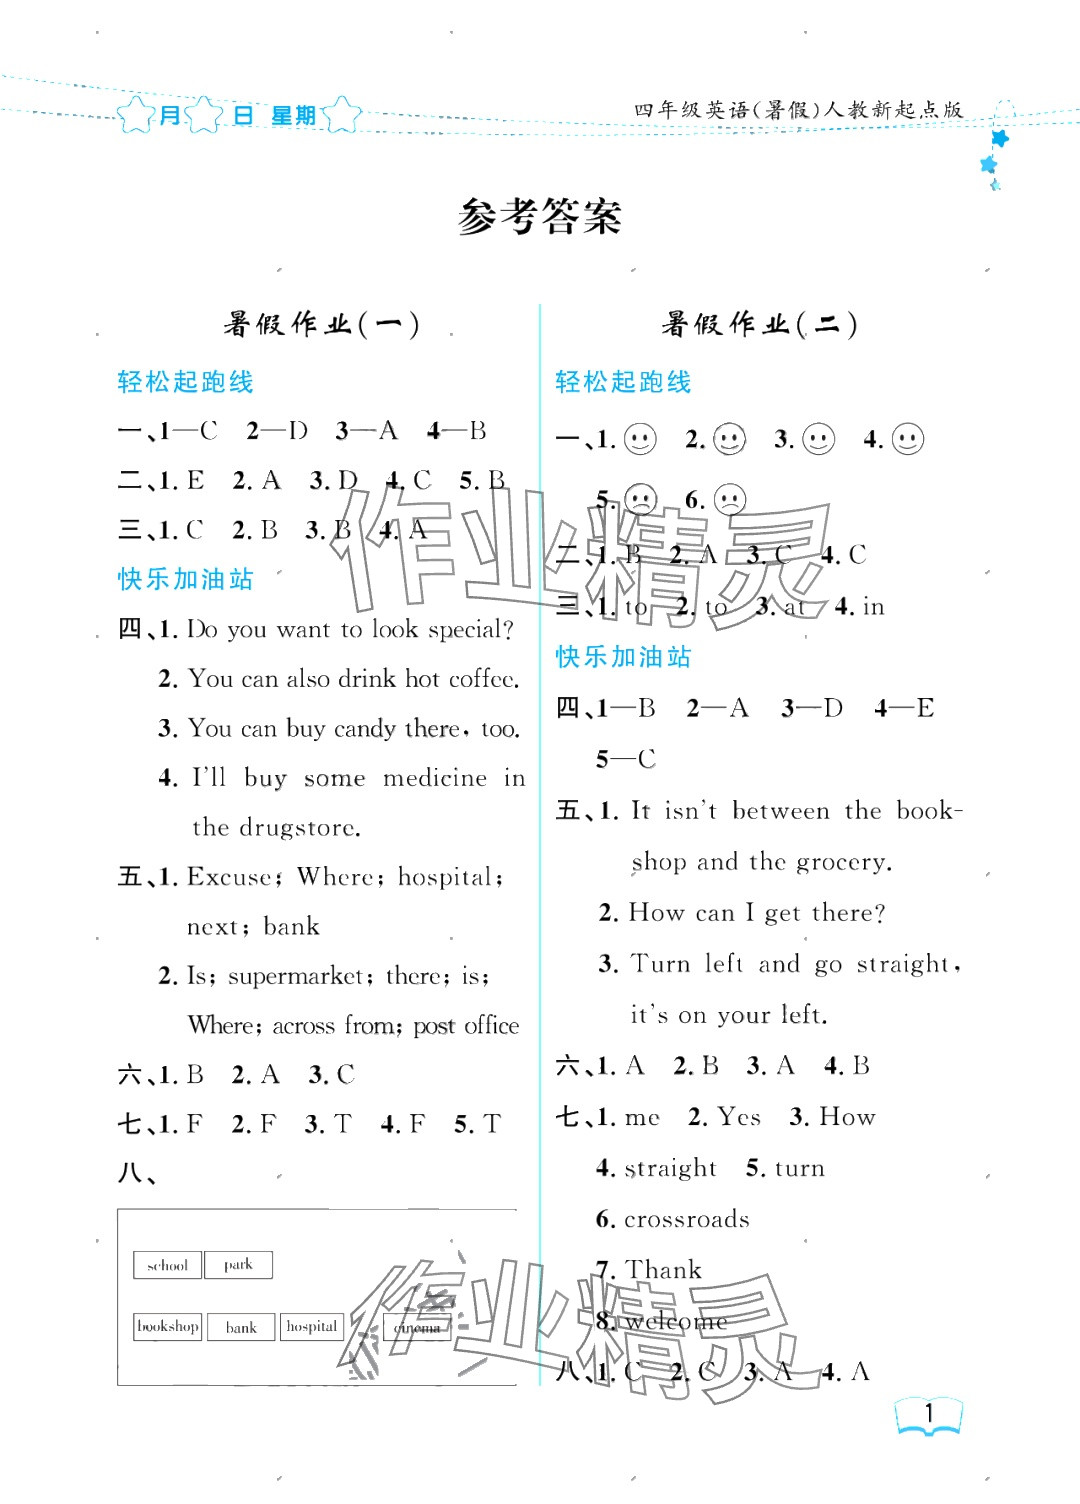 月 日 星期
四年级英语(暑假)人教新起点版
参考答案
暑假作业(一)
轻松起跑线
一、1—C 2—D 3—A 4—B
二、1. E 2. A 3. D 4. C 5. B
三、1. C 2. B 3. B 4. A
快乐加油站
四、1. Do you want to look special?
2. You can also drink hot coffee.
3. You can buy candy there, too.
4. I'll buy some medicine in
the drugstore.
五、1. Excuse; Where; hospital;
next; bank
2. Is; supermarket; there; is;
Where; across from; post office
六、1. B 2. A 3. C
七、1. F 2. F 3. T 4. F 5. T
八、
school park
bookshop bank hospital cinema
暑假作业(二)
轻松起跑线
一、1. 2. 3. 4.
5. 6.
二、1. B 2. A 3. C 4. C
三、1. to 2. to 3. at 4. in
快乐加油站
四、1—B 2—A 3—D 4—E
5—C
五、1. It isn't between the book-
shop and the grocery.
2. How can I get there?
3. Turn left and go straight,
it's on your left.
六、1. A 2. B 3. A 4. B
七、1. me 2. Yes 3. How
4. straight 5. turn
6. crossroads
7. Thank
8. welcome
八、1. C 2. C 3. A 4. A
作业精灵
作业精灵
1